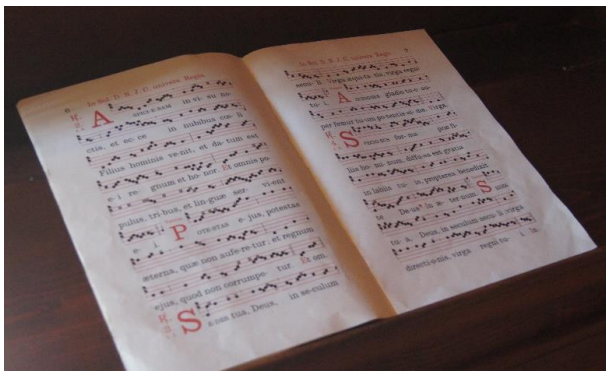 6
In fest. D. N. J. C. universorum Regis
ASPICIEBAM in vi- su no-
ctis, et ec- ce in nubibus cœ- li
Filius hominis ve-nit, et da- tum est
e- i re- gnum et ho- nor. Et omnis po-
pulus, tri- bus, et lin- guæ ser- vi-ent
e- i. POTESTAS e- jus, potestas
æterna, quæ non aufe-re- tur, et regnum
ejus, quod non corrumpe- tur Et om.
SEDES tua, Deus, in sæculum
7
Regis
sæcu- li. Virga æqui- ta- tis, virga regni
tu- i. ACCINGERE gladio tu- o su-
per femur tu- um po-ten-tis-si- me. Virga.
SPECIOSUS for- ma præ fi-
liis ho- mi- num, diffu-sa est gratia
in labiis tu- is, propterea benedixit
te Deus in æ- ter- num SEDES
tu- a, Deus, in sæculum sæcu- li: virga
directi-o-nis, virga regni tu- i. Ia.